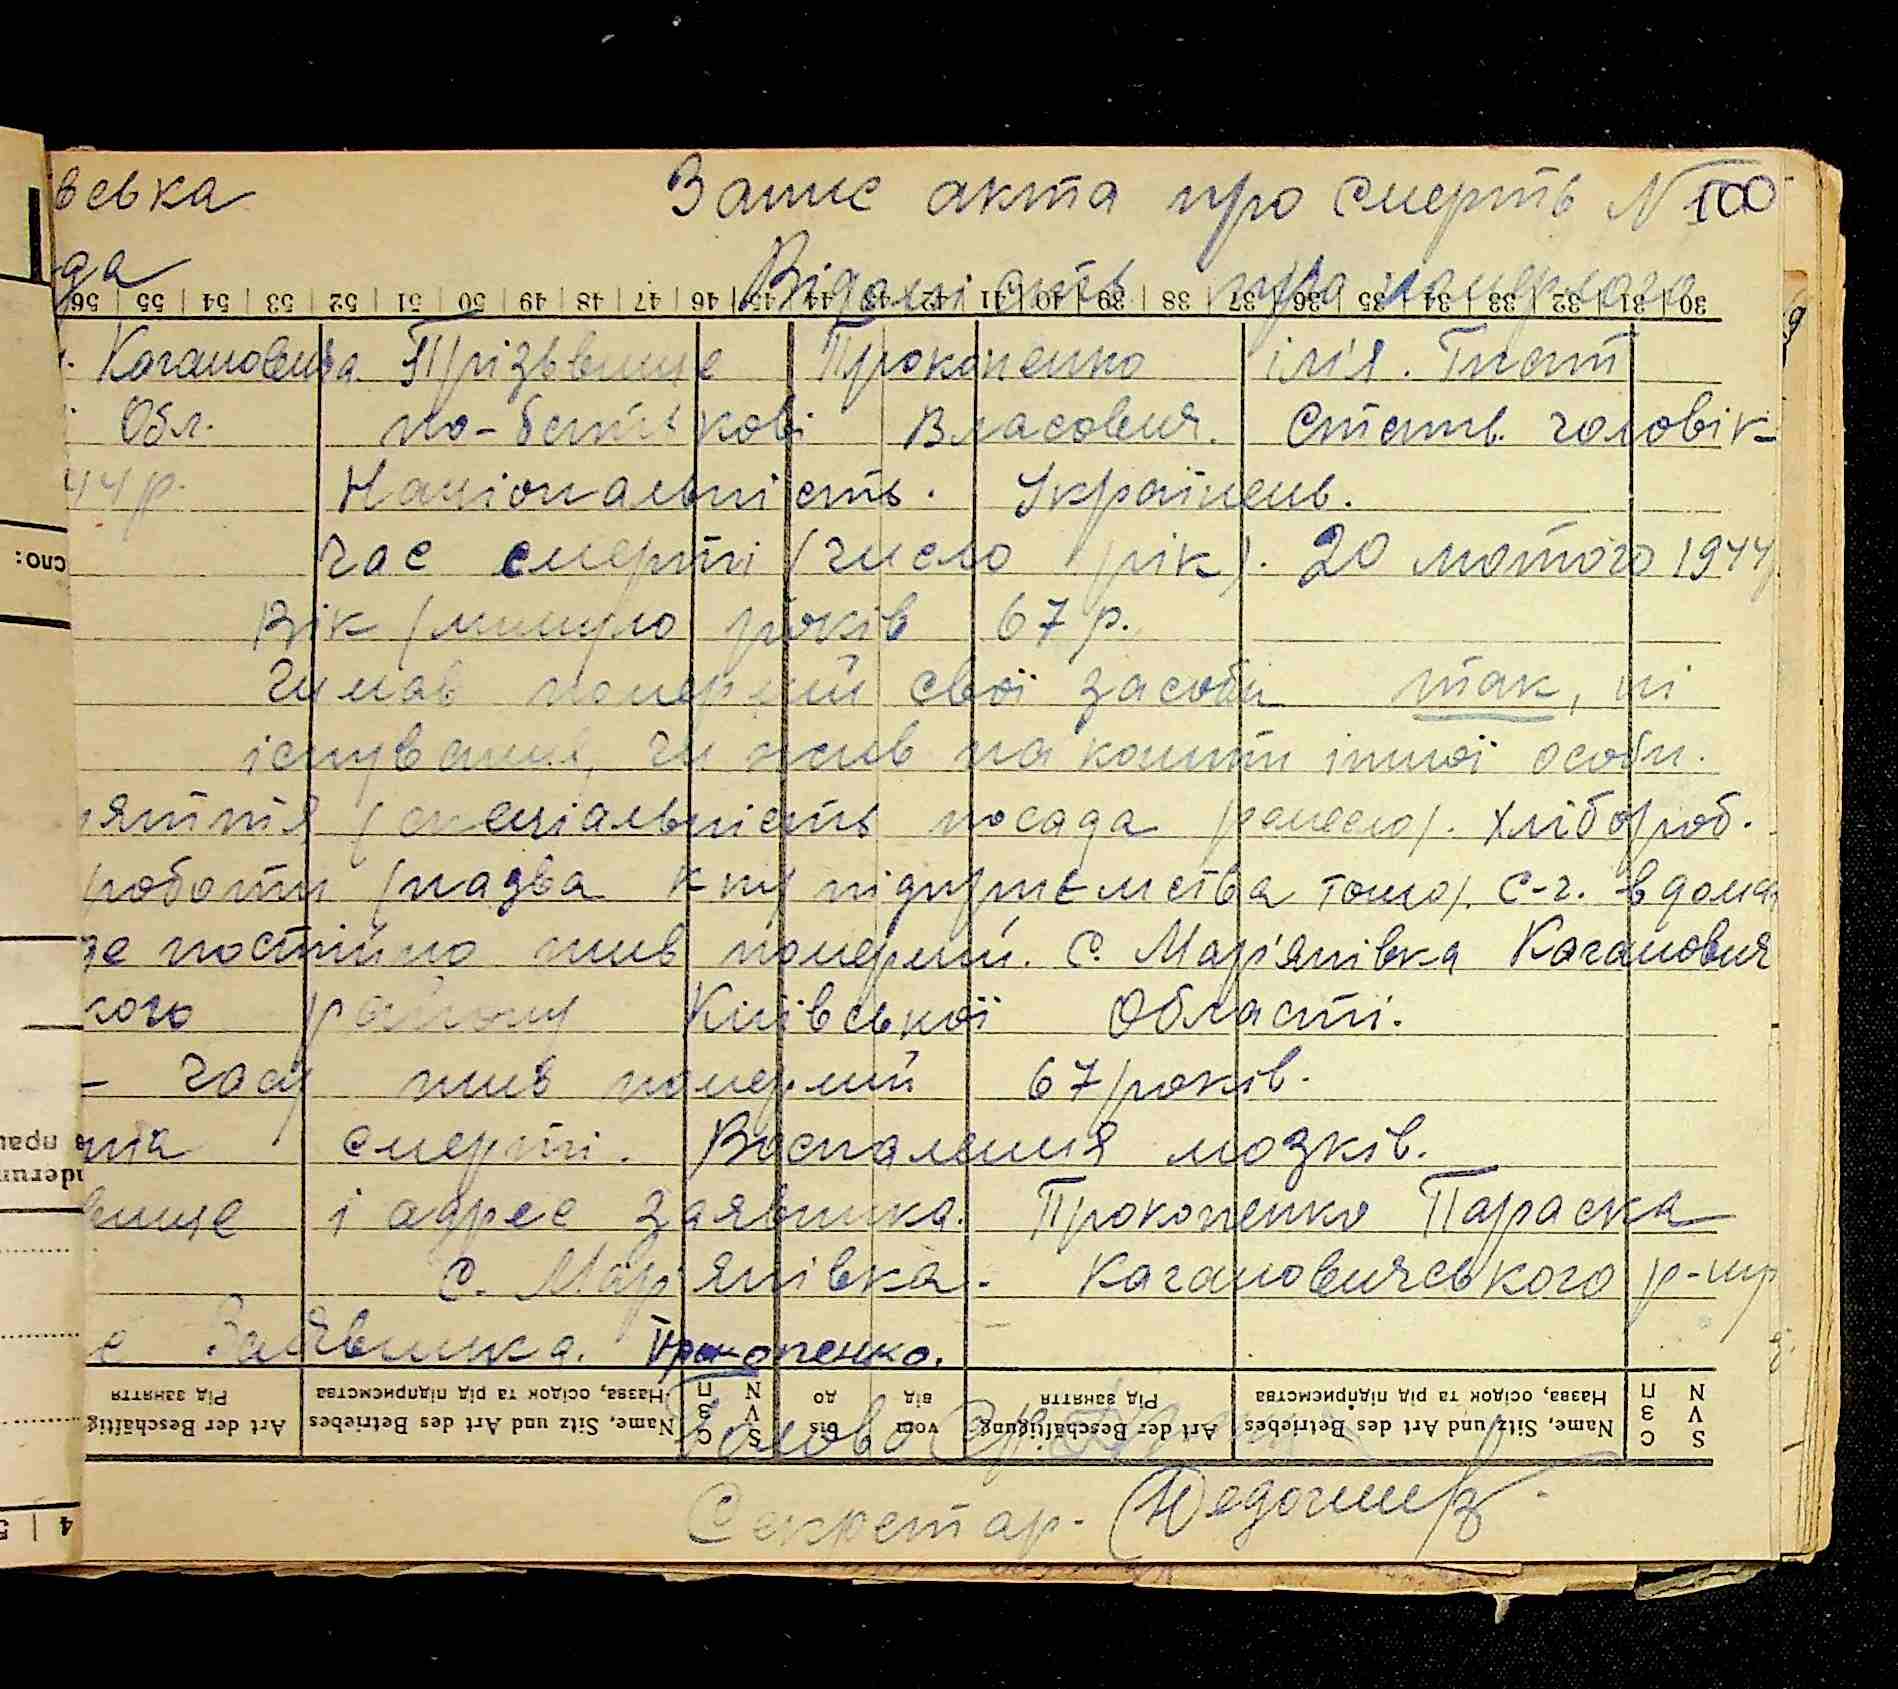 вська Запис акта про смерть N 100
да Відомість про померлого
56 | 55 | 54 | 53 | 52 | 51 | 50 | 49 | 48 | 47 | 46 | 45 | 44 | 43 | 42 | 41 | 40 | 39 | 38 | 37 | 36 | 35 | 34 | 33 | 32 | 31 | 30
Кагановича Прізьвище Прокопенко ім'я. Гнат
Обл. по-батькові Власович. Стать чоловік-
44 р. Національність. Українець.
сло: Час смерті (число рік). 20 лютого 1944
Вік (минуло років 67 р.
Чи мав померлий свої засоби так, ні
існування, чи жив на кошти іншої особи.
няття (спеціальність посада ремесло). хлібороб.
роботи (назва підприємства тощо). С-г. в дома
де постійно жив померлий. С. Мар'янівка Каганович
кого району Київської Області.
- часу жив померлий 67 років.
смерті. Воспаления мозків.
вище і адрес заявника. Прокопенко Параска
С. Мар'янівка. Кагановичського р-ну
Заявника. Прокопенко.
Art der Beschäftig
Рід заняття
Name, Sitz und Art des Betriebes
Назва, осідок та рід підприємства
S V N
С З П
bis
до
vom
від
Art der Beschäftigung
Рід заняття
Name, Sitz und Art des Betriebes
Назва, осідок та рід підприємства
S V N
С З П
Голова
Секретар.
4 | 5